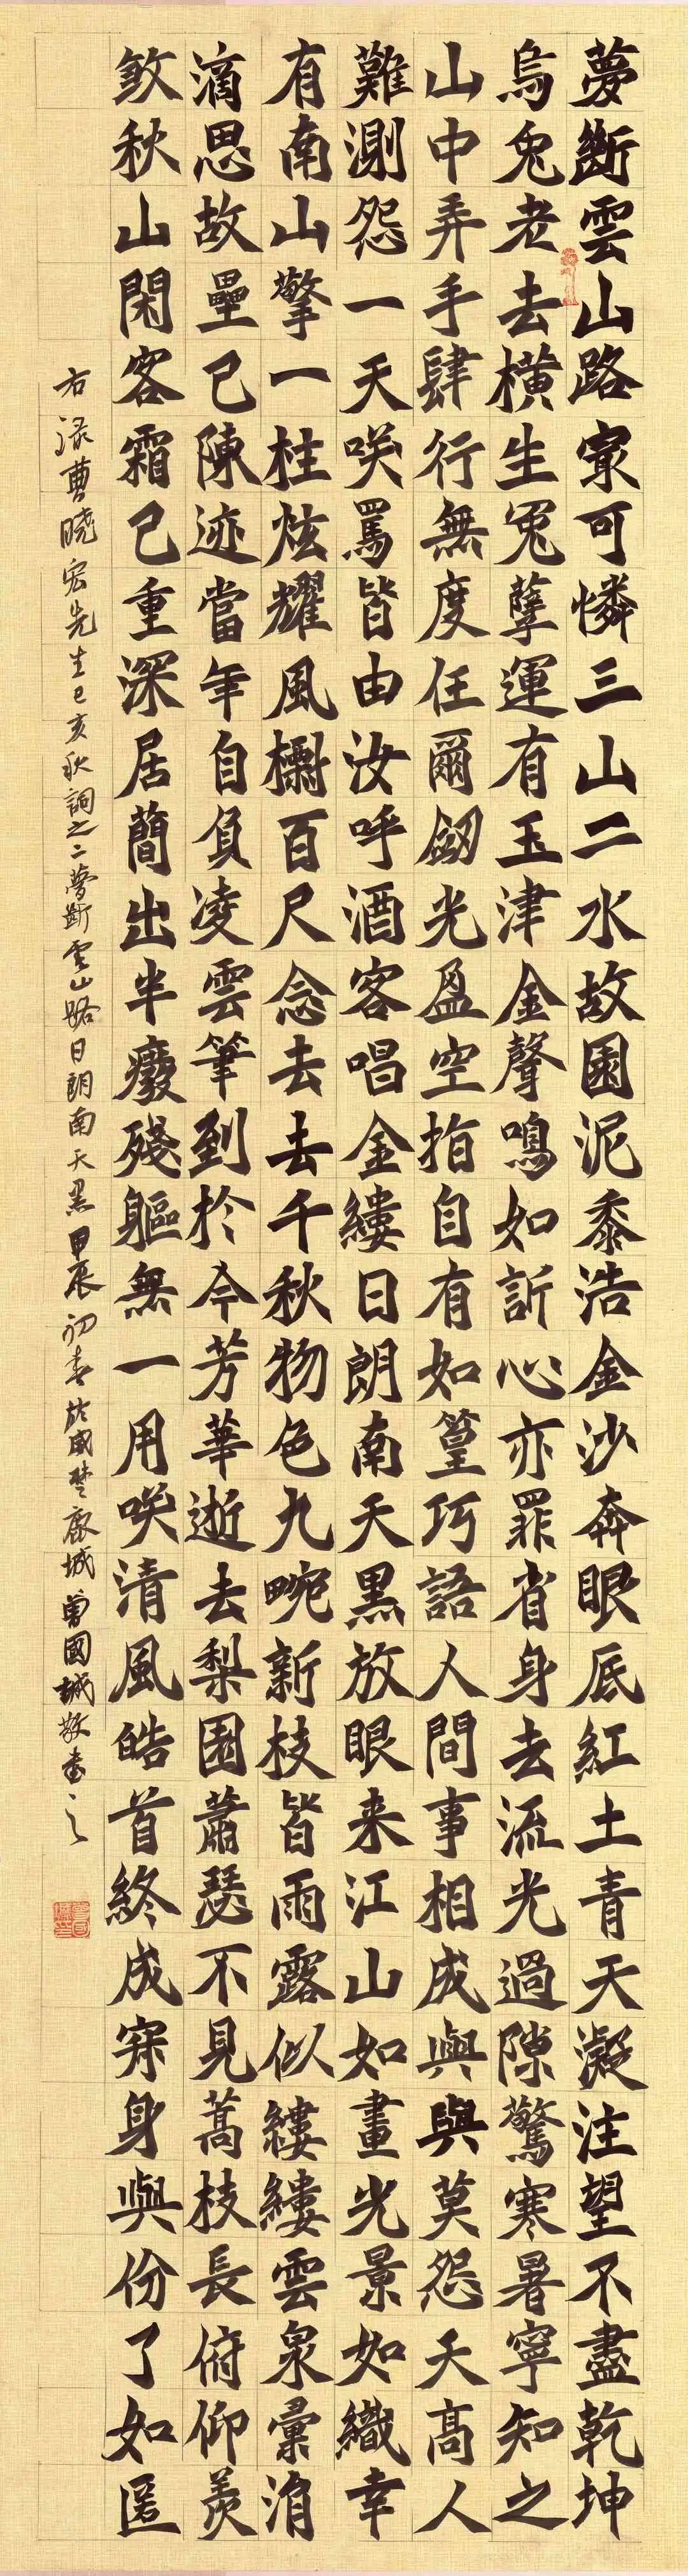 夢斷雲山路寂可憐三山二水故園泥黍浩金沙奔眼底紅土青天凝注望不盡乾坤
烏兔老去橫生冤孽運有玉津金聲鳴如訴心亦罪省身去流光過隙驚寒暑寧知之
山中弄手肆行無度任爾劒光盈空指自有如篁巧語人間事相成與與莫怨天高人
難測怨一天咲罵皆由汝呼酒客唱金縷日朗南天黑放眼来江山如畫光景如織幸
有南山擎一柱炫耀風櫥百尺念去去千秋物色九畹新枝皆雨露似縷縷雲泉彙涓
滴思故壘已陳迹當年自負凌雲筆到於今芳華逝去梨園蕭瑟不見蒿枝長俯仰羨
敛秋山閑客霜已重深居簡出半癈殘軀無一用咲清風皓首終成寀身與份了如匿
右录曹曉宏先生己亥秋詞之二夢斷雲山路日朗南天黑甲辰初春於威楚鹿城曾國城敬書之